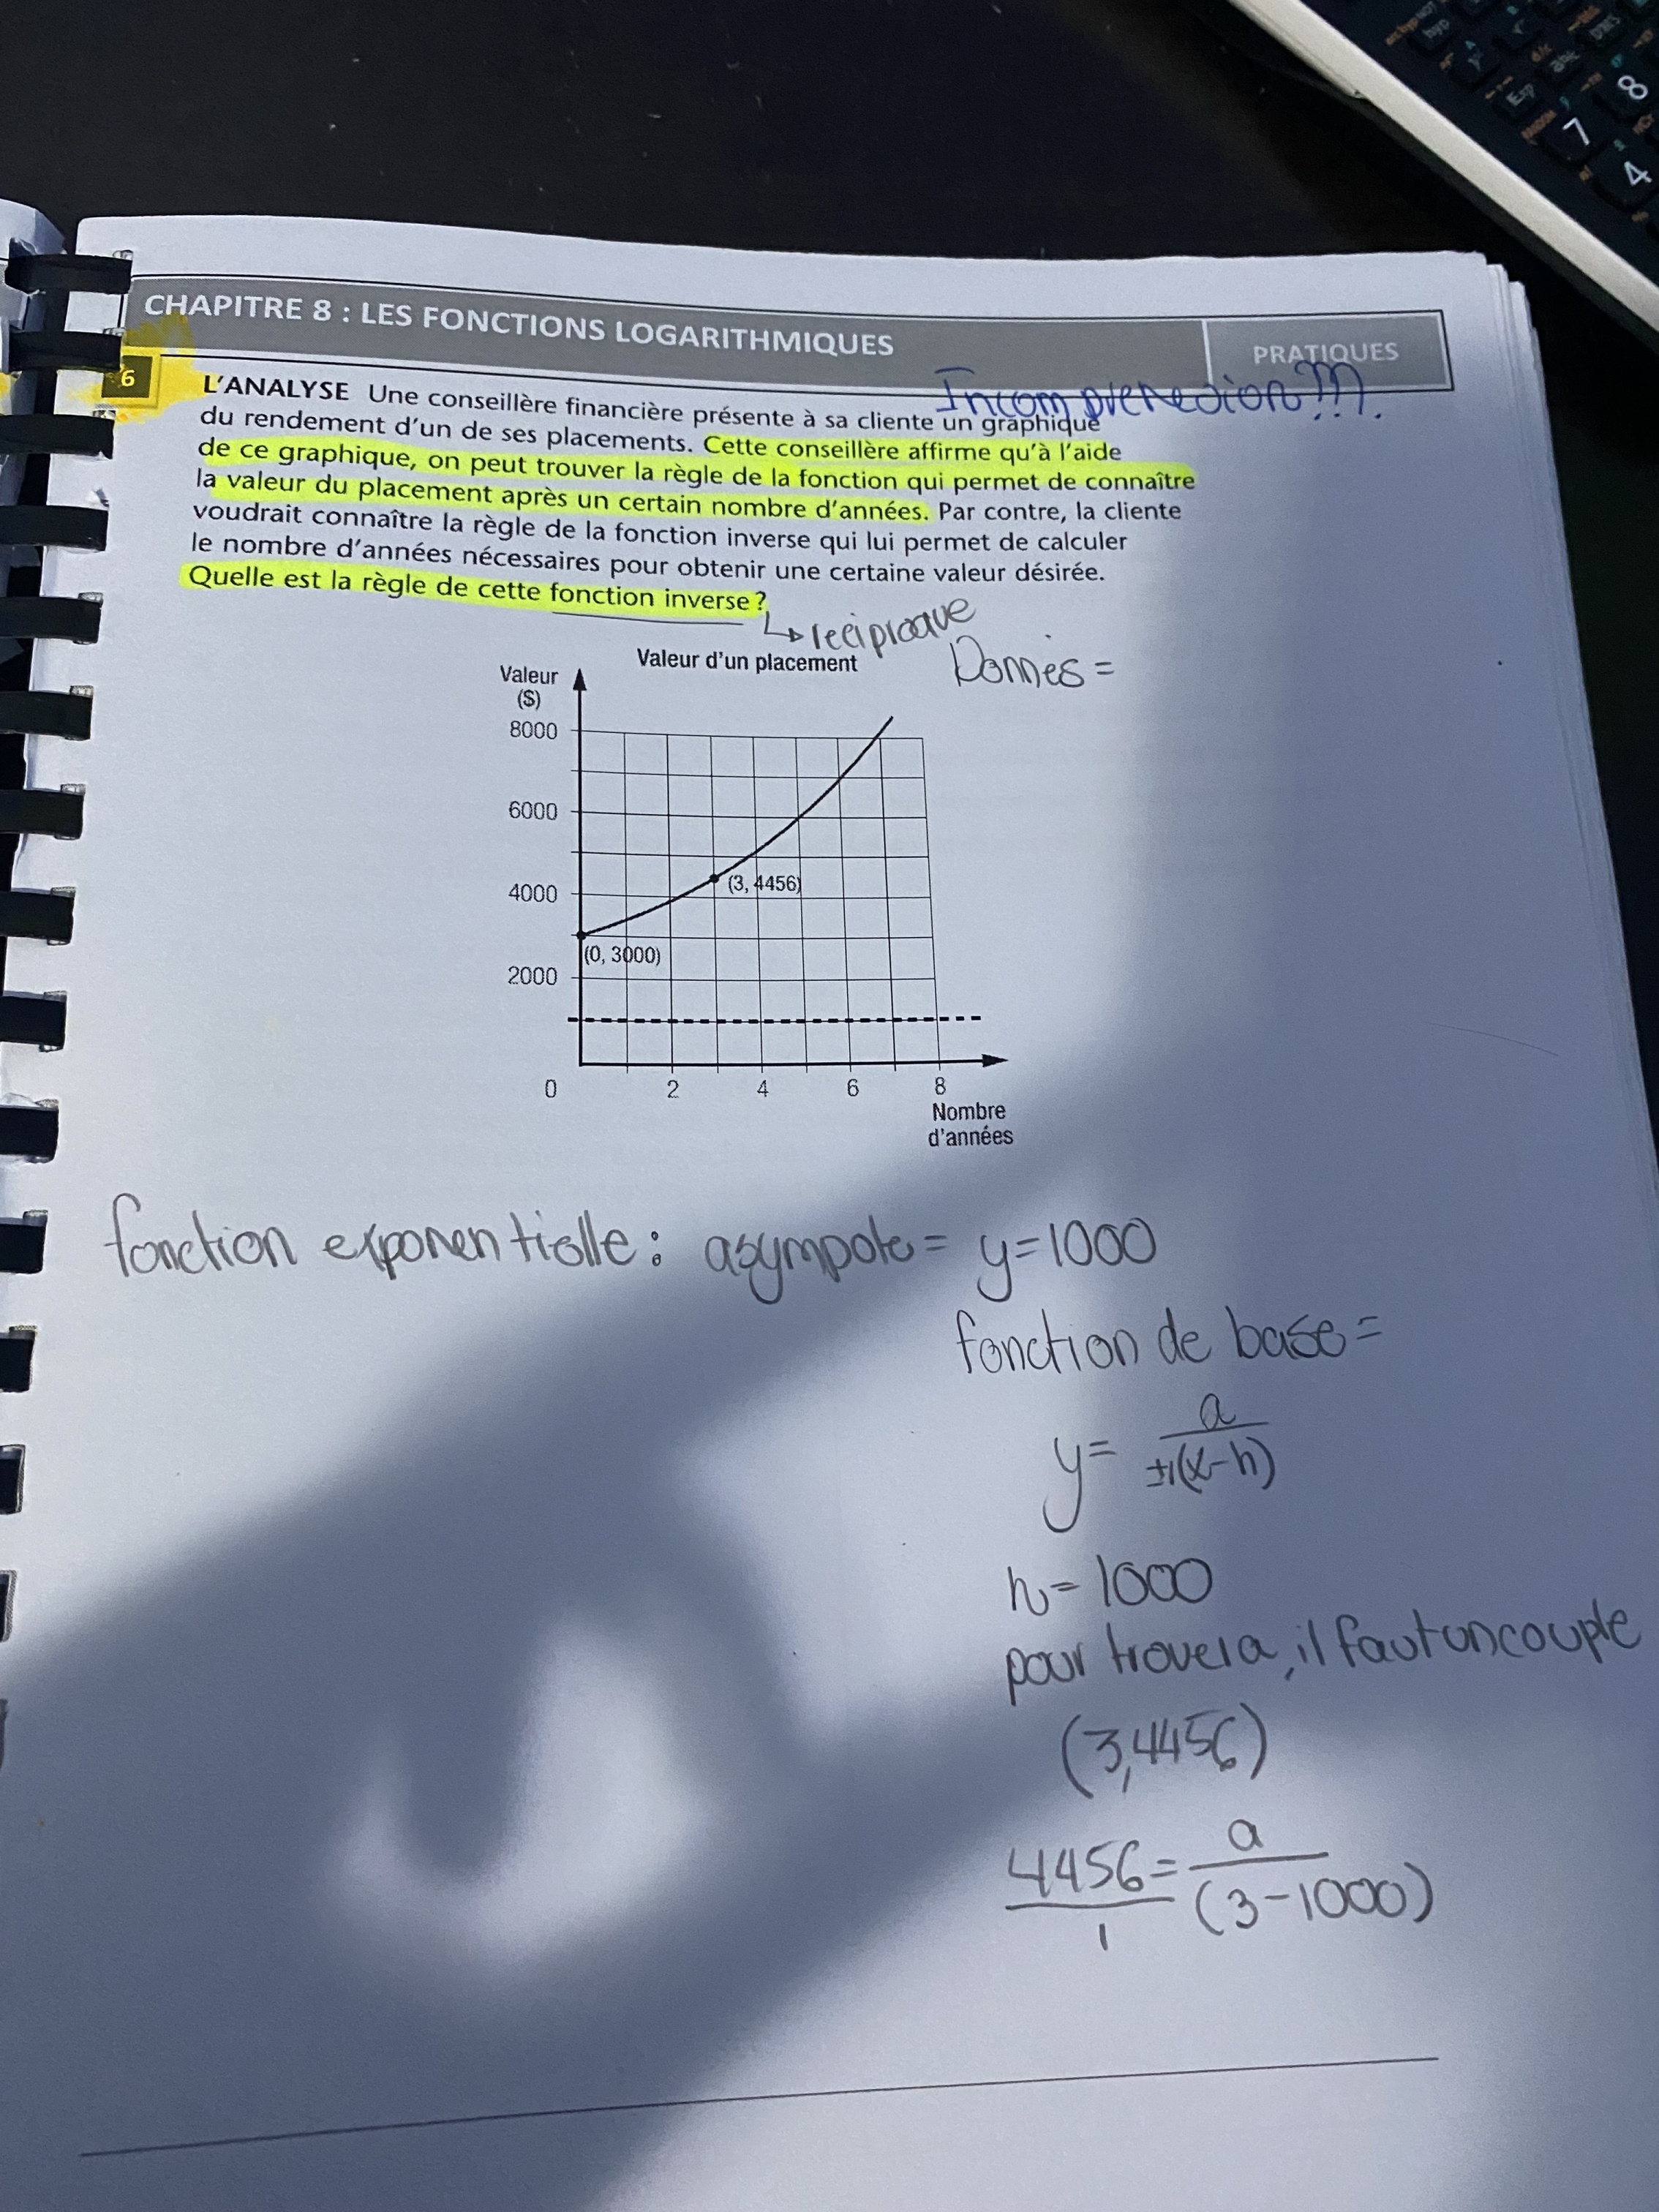 CHAPITRE 8 : LES FONCTIONS LOGARITHMIQUES
PRATIQUES
6
L'ANALYSE Une conseillère financière présente à sa cliente un graphique
du rendement d'un de ses placements. Cette conseillère affirme qu'à l'aide
de ce graphique, on peut trouver la règle de la fonction qui permet de connaître
la valeur du placement après un certain nombre d'années. Par contre, la cliente
voudrait connaître la règle de la fonction inverse qui lui permet de calculer
le nombre d'années nécessaires pour obtenir une certaine valeur désirée.
Quelle est la règle de cette fonction inverse ?
Valeur d'un placement
Valeur
($)
8000
6000
4000
(3, 4456)
(0, 3000)
2000
0 2 4 6 8
Nombre
d'années
fonction exponentielle : asympote = y=1000
fonction de base =
y= a
±1(x-h)
h=1000
pour trouver a, il faut un couple
(3,4456)
4456 = a
1 (3-1000)
7
8
4
Exp
hyp